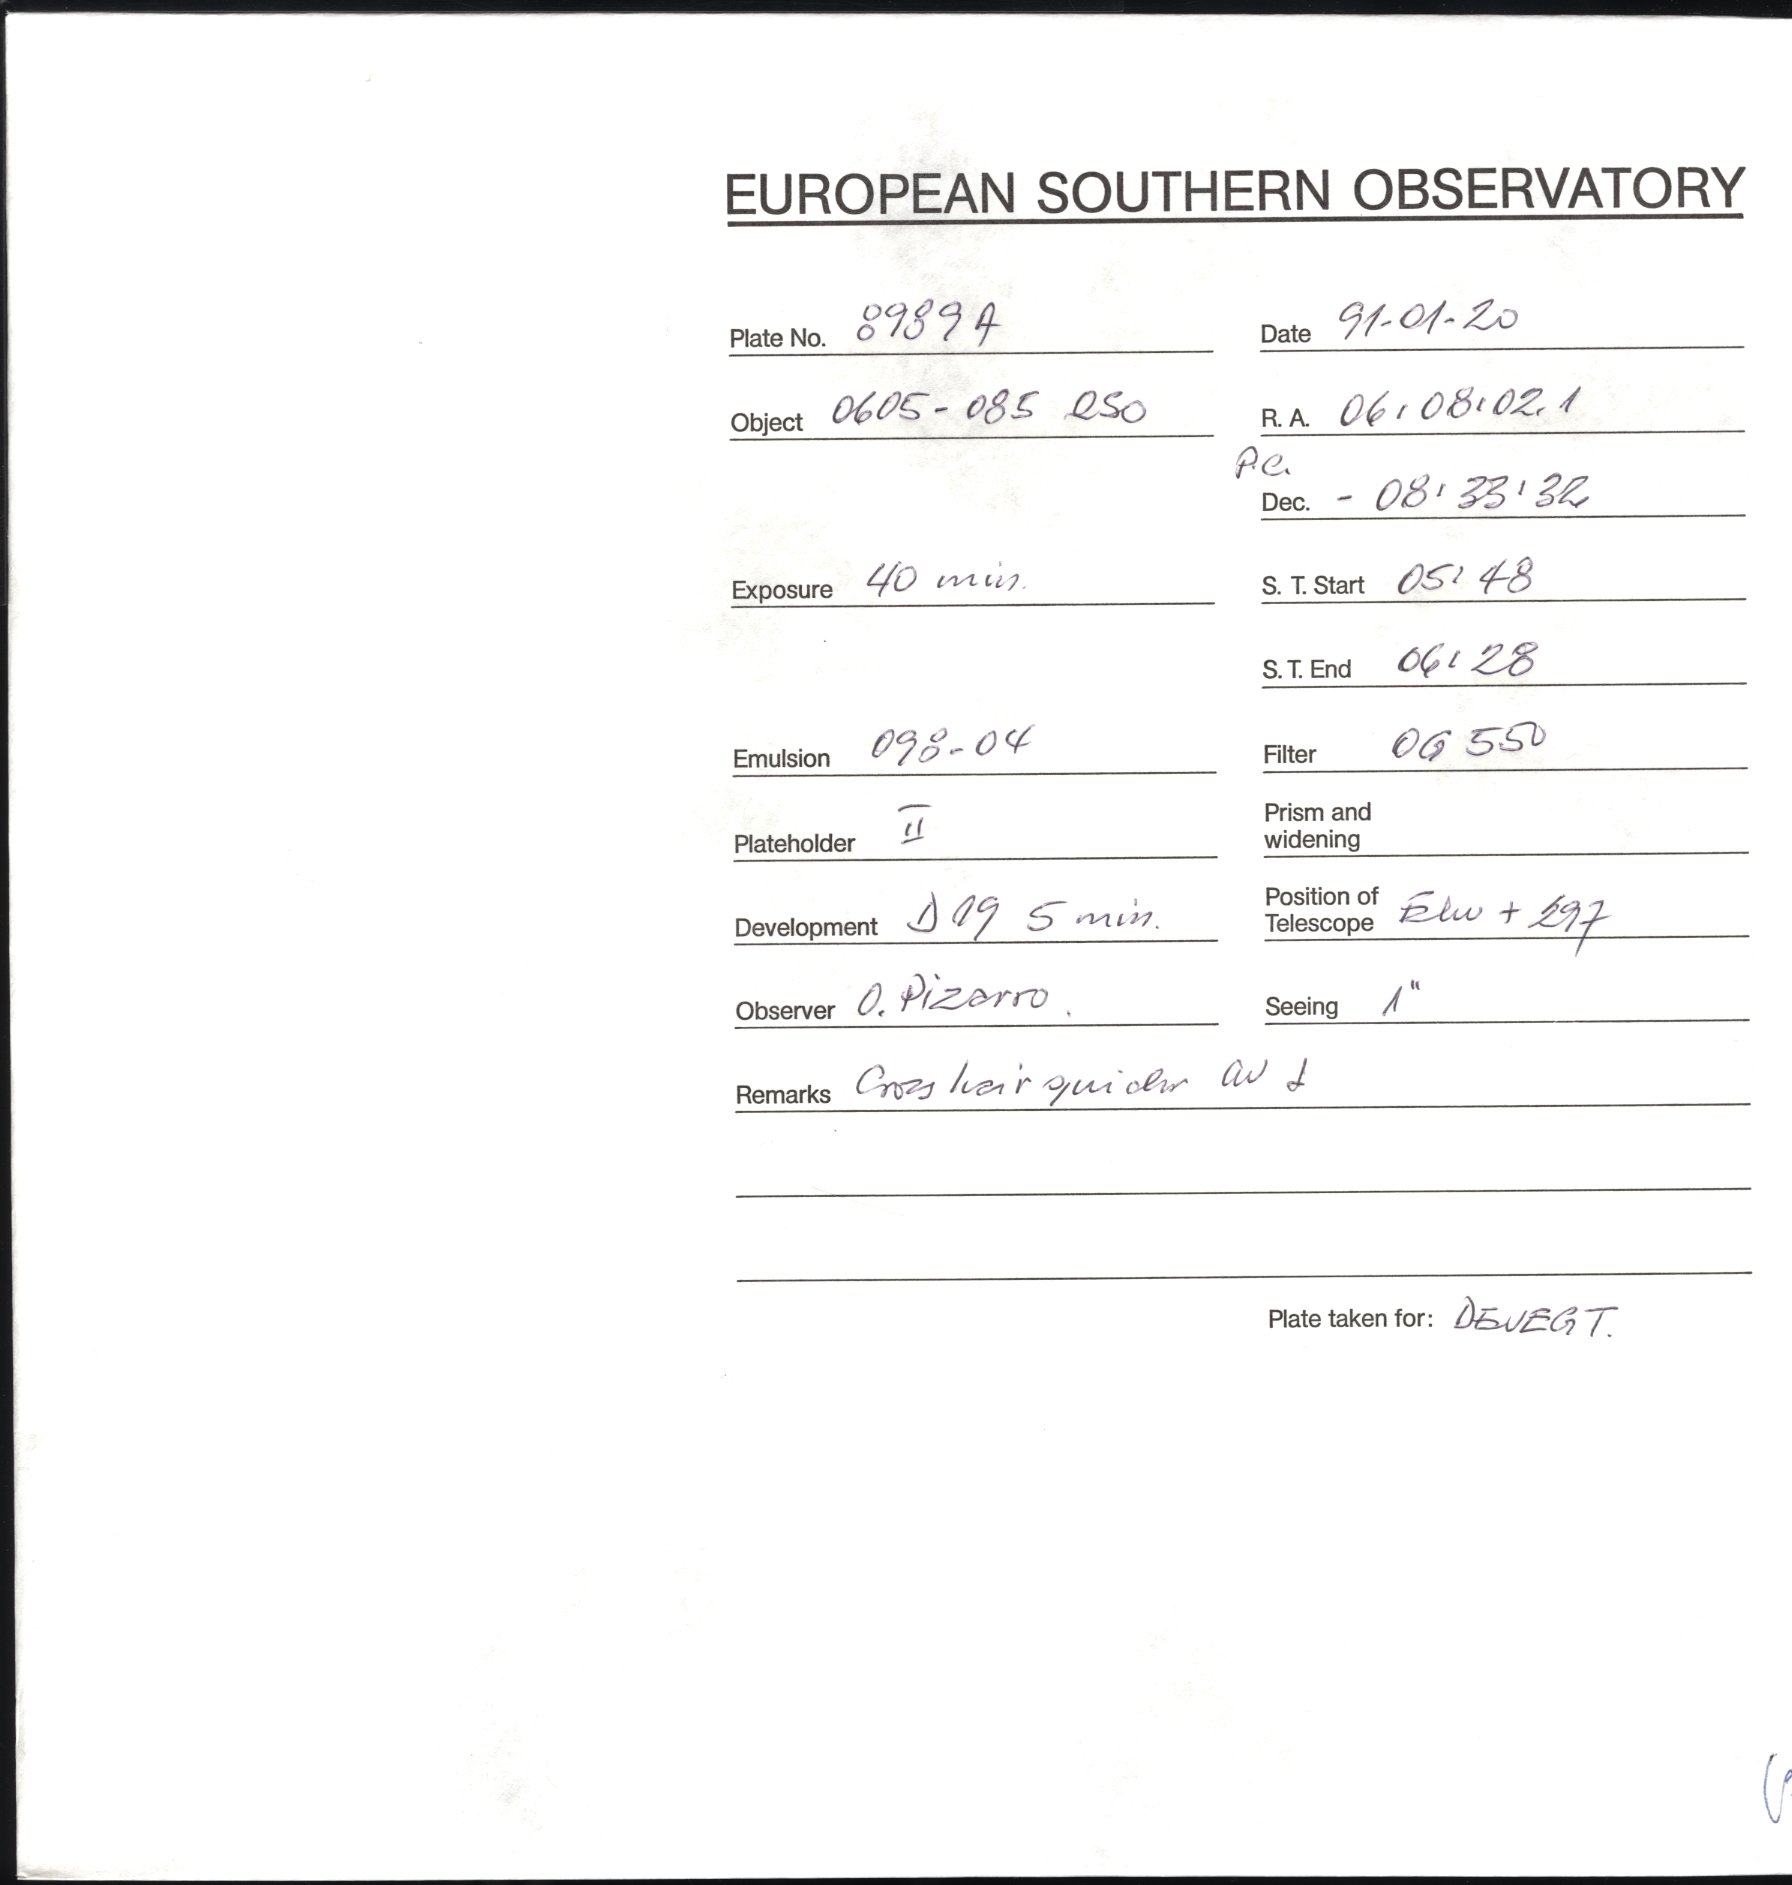 EUROPEAN SOUTHERN OBSERVATORY
Plate No. 8989 A Date 91-01-20
Object 0605-085 QSO R. A. 06:08:02.1
P.C.
Dec. - 08:33:32
Exposure 40 min. S. T. Start 05:48
S. T. End 06:28
Emulsion 098-04 Filter OG 550
Plateholder II Prism and widening
Development D19 5 min. Position of Telescope +
Observer O. Pizarro. Seeing 1"
Remarks Cross hair guider
Plate taken for: DEVEGT.